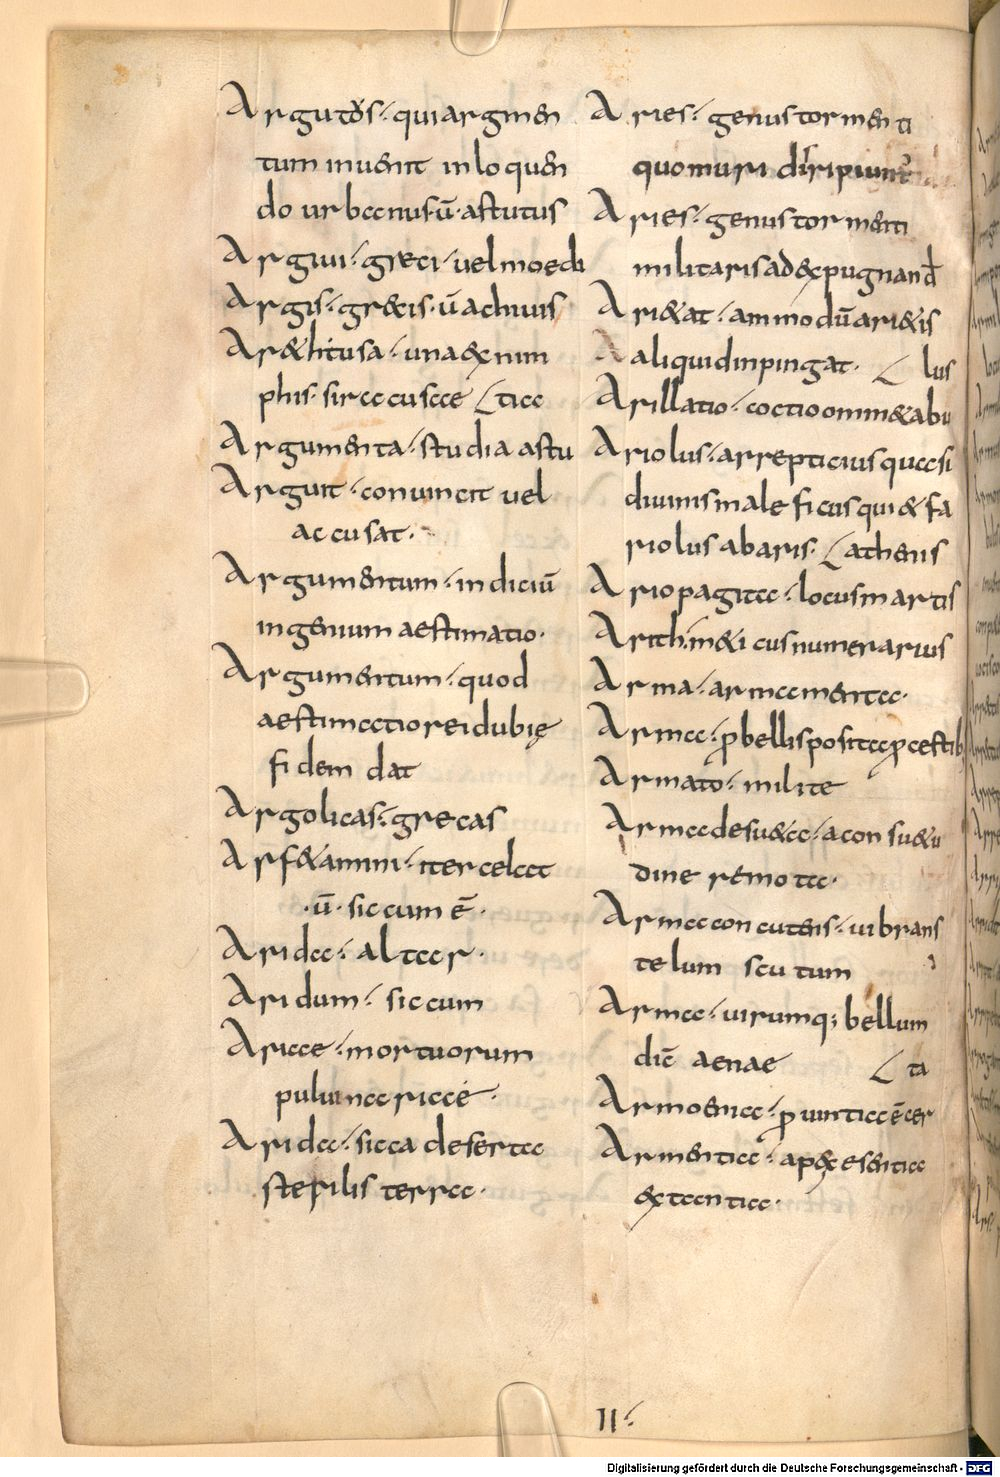 Argutus · qui argmen
tum inuenit in loquen
do urbanus · ū · astutus
Argiui · greci · uel moedi
Argis · gr&is · ū achiuis
Ar&husa · una ex nim
phis · siracusae tia
Argumenta · studia astu
Arguit · conuincit uel
accusat ·
Argumentum · indiciū
ingenium aestimatio ·
Argumentum · quod
aestimatio rei dubię
fidem dat
Argolicas · grecas
Arf& amni · iter celat
· ū · siccum ē ·
Arida · altar ·
Aridum · siccum
Ariae · mortuorum
puluinaria é ·
Arida · sicca deserta
sterilis terra ·
Aries · genus tormenti
quo muri diripiunt
Aries · genus tormenti
militaris ad expugnand
Ari&at · ammodū ari&is
A aliquid inpingat · lus
Arillatio · coctio omni& abu
Ariolus · arrepticius quasi
diuinis maleficus qui & fa
riolus ab aris · athenis
Ariopagita · locus martis
Arithm&icus numerarius
Arma · armamenta ·
Arma · p bellis posita p cestib
Armato · milite
Arma desu&a · a consu&u
dine remota ·
Arma concutens · uibrans
telum scutum
Arma · uirumq; bellum
diē aenae ta
Armoenia · p uirtia ē cer
Armentia · ap& esentia
extantia ·
II ·
Digitalisierung gefördert durch die Deutsche Forschungsgemeinschaft - DFG